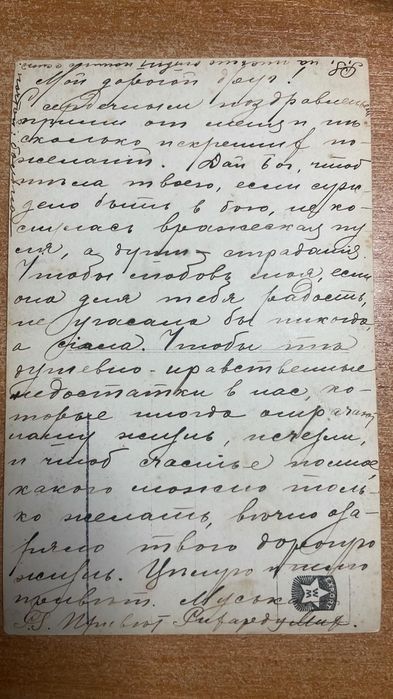 Мой дорогой друг!
Сердечным поздравленьем
прими от меня и нѣ-
сколько искренних по-
желаній. Дай Бог, чтоб
тѣла твоего, если суж-
дено быть в бою, не ко-
снулась вражеская пу-
ля, а души – страданія.
Чтобы любовь моя, если
она для тебя радость,
не угасала бы никогда,
а сіяла. Чтобы тѣ
душевно-нравственные
недостатки в нас, ко-
торые иногда омрачают
нашу жизнь, исчезли,
и чтоб счастье полное,
какого можно толь-
ко желать, вѣчно оза-
ряло твою дорогую
жизнь. Цѣлую и шлю
привѣт. Муська
P.S. Привѣт